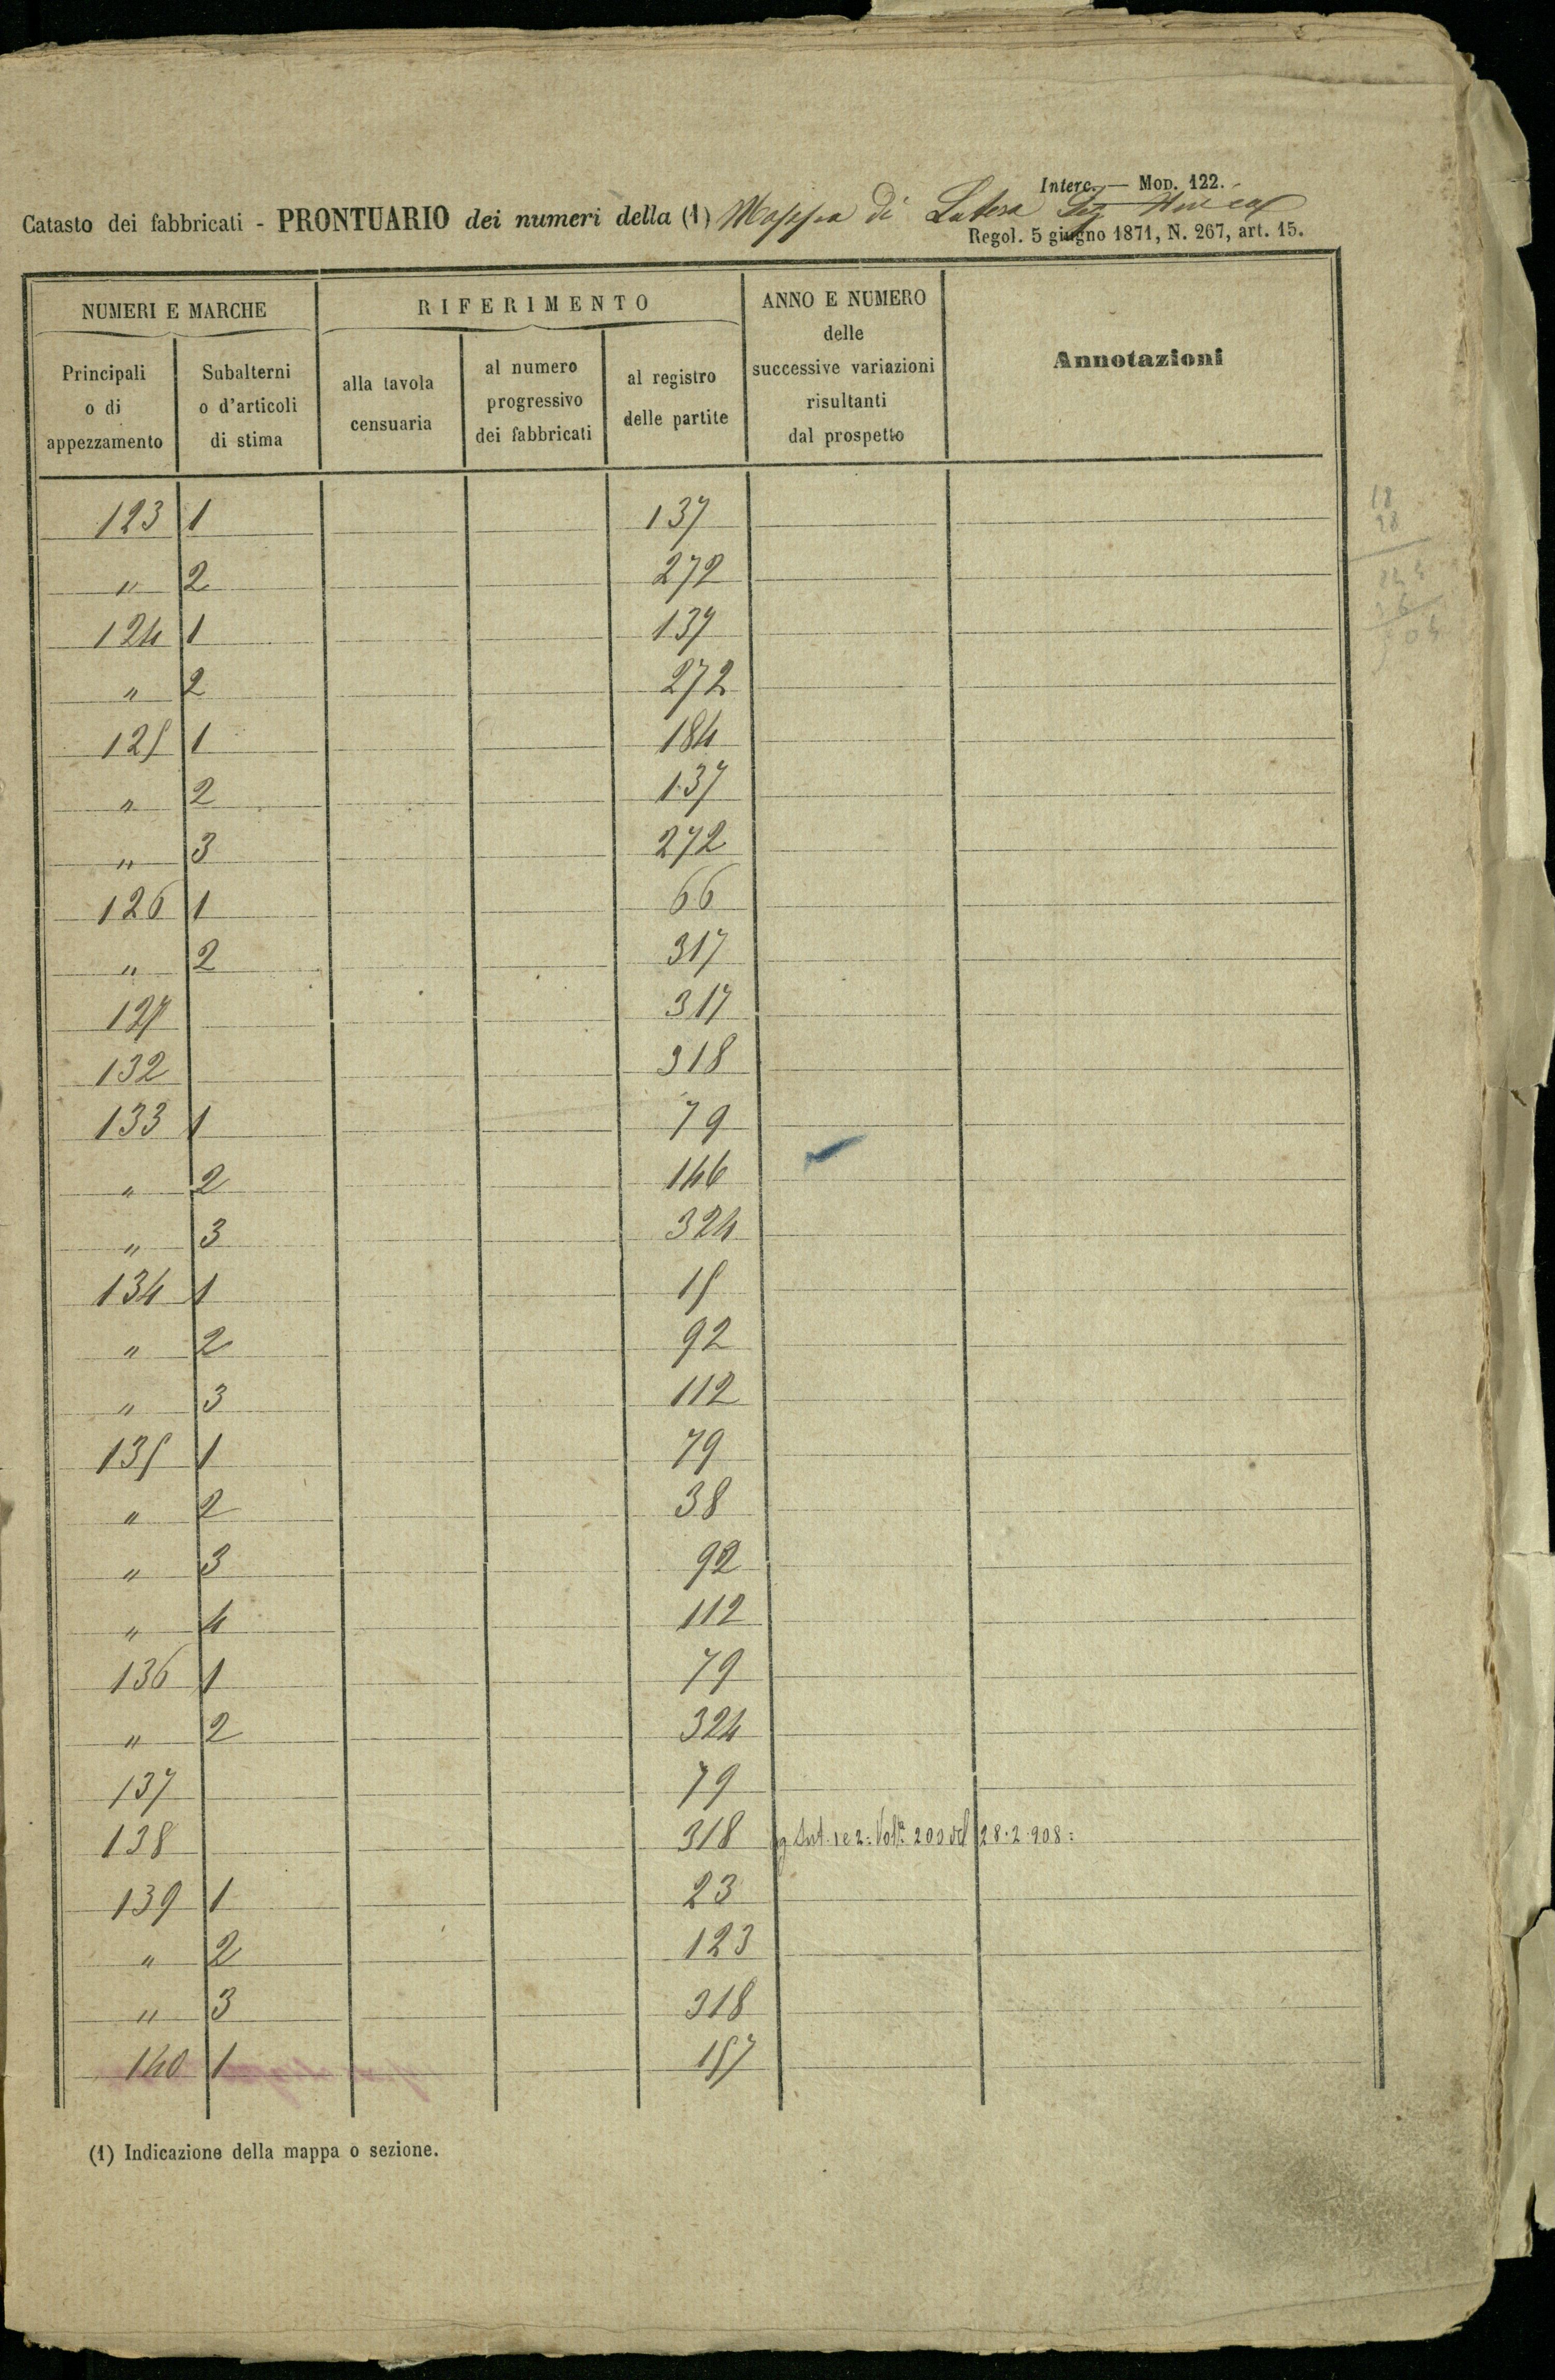 Interc. — Mod. 122.
Catasto dei fabbricati - PRONTUARIO dei numeri della (1) Mappa di Latera Sez Unica
Regol. 5 giugno 1871, N. 267, art. 15.
NUMERI E MARCHE
RIFERIMENTO
ANNO E NUMERO
delle
successive variazioni
risultanti
dal prospetto
Annotazioni
Principali
o di
appezzamento
Subalterni
o d'articoli
di stima
alla tavola
censuaria
al numero
progressivo
dei fabbricati
al registro
delle partite
123 1 137
" 2 272
124 1 137
" 2 272
125 1 184
" 2 137
" 3 272
126 1 66
" 2 317
127 317
132 318
133 1 79
" 2 146
" 3 324
134 1 15
" 2 92
" 3 112
135 1 79
" 2 38
" 3 92
" 4 112
136 1 79
" 2 324
137 79
138 318 1 e 2: Vol. 200 del 28.2.908:
139 1 23
" 2 123
" 3 318
140 1 157
18
28
(1) Indicazione della mappa o sezione.